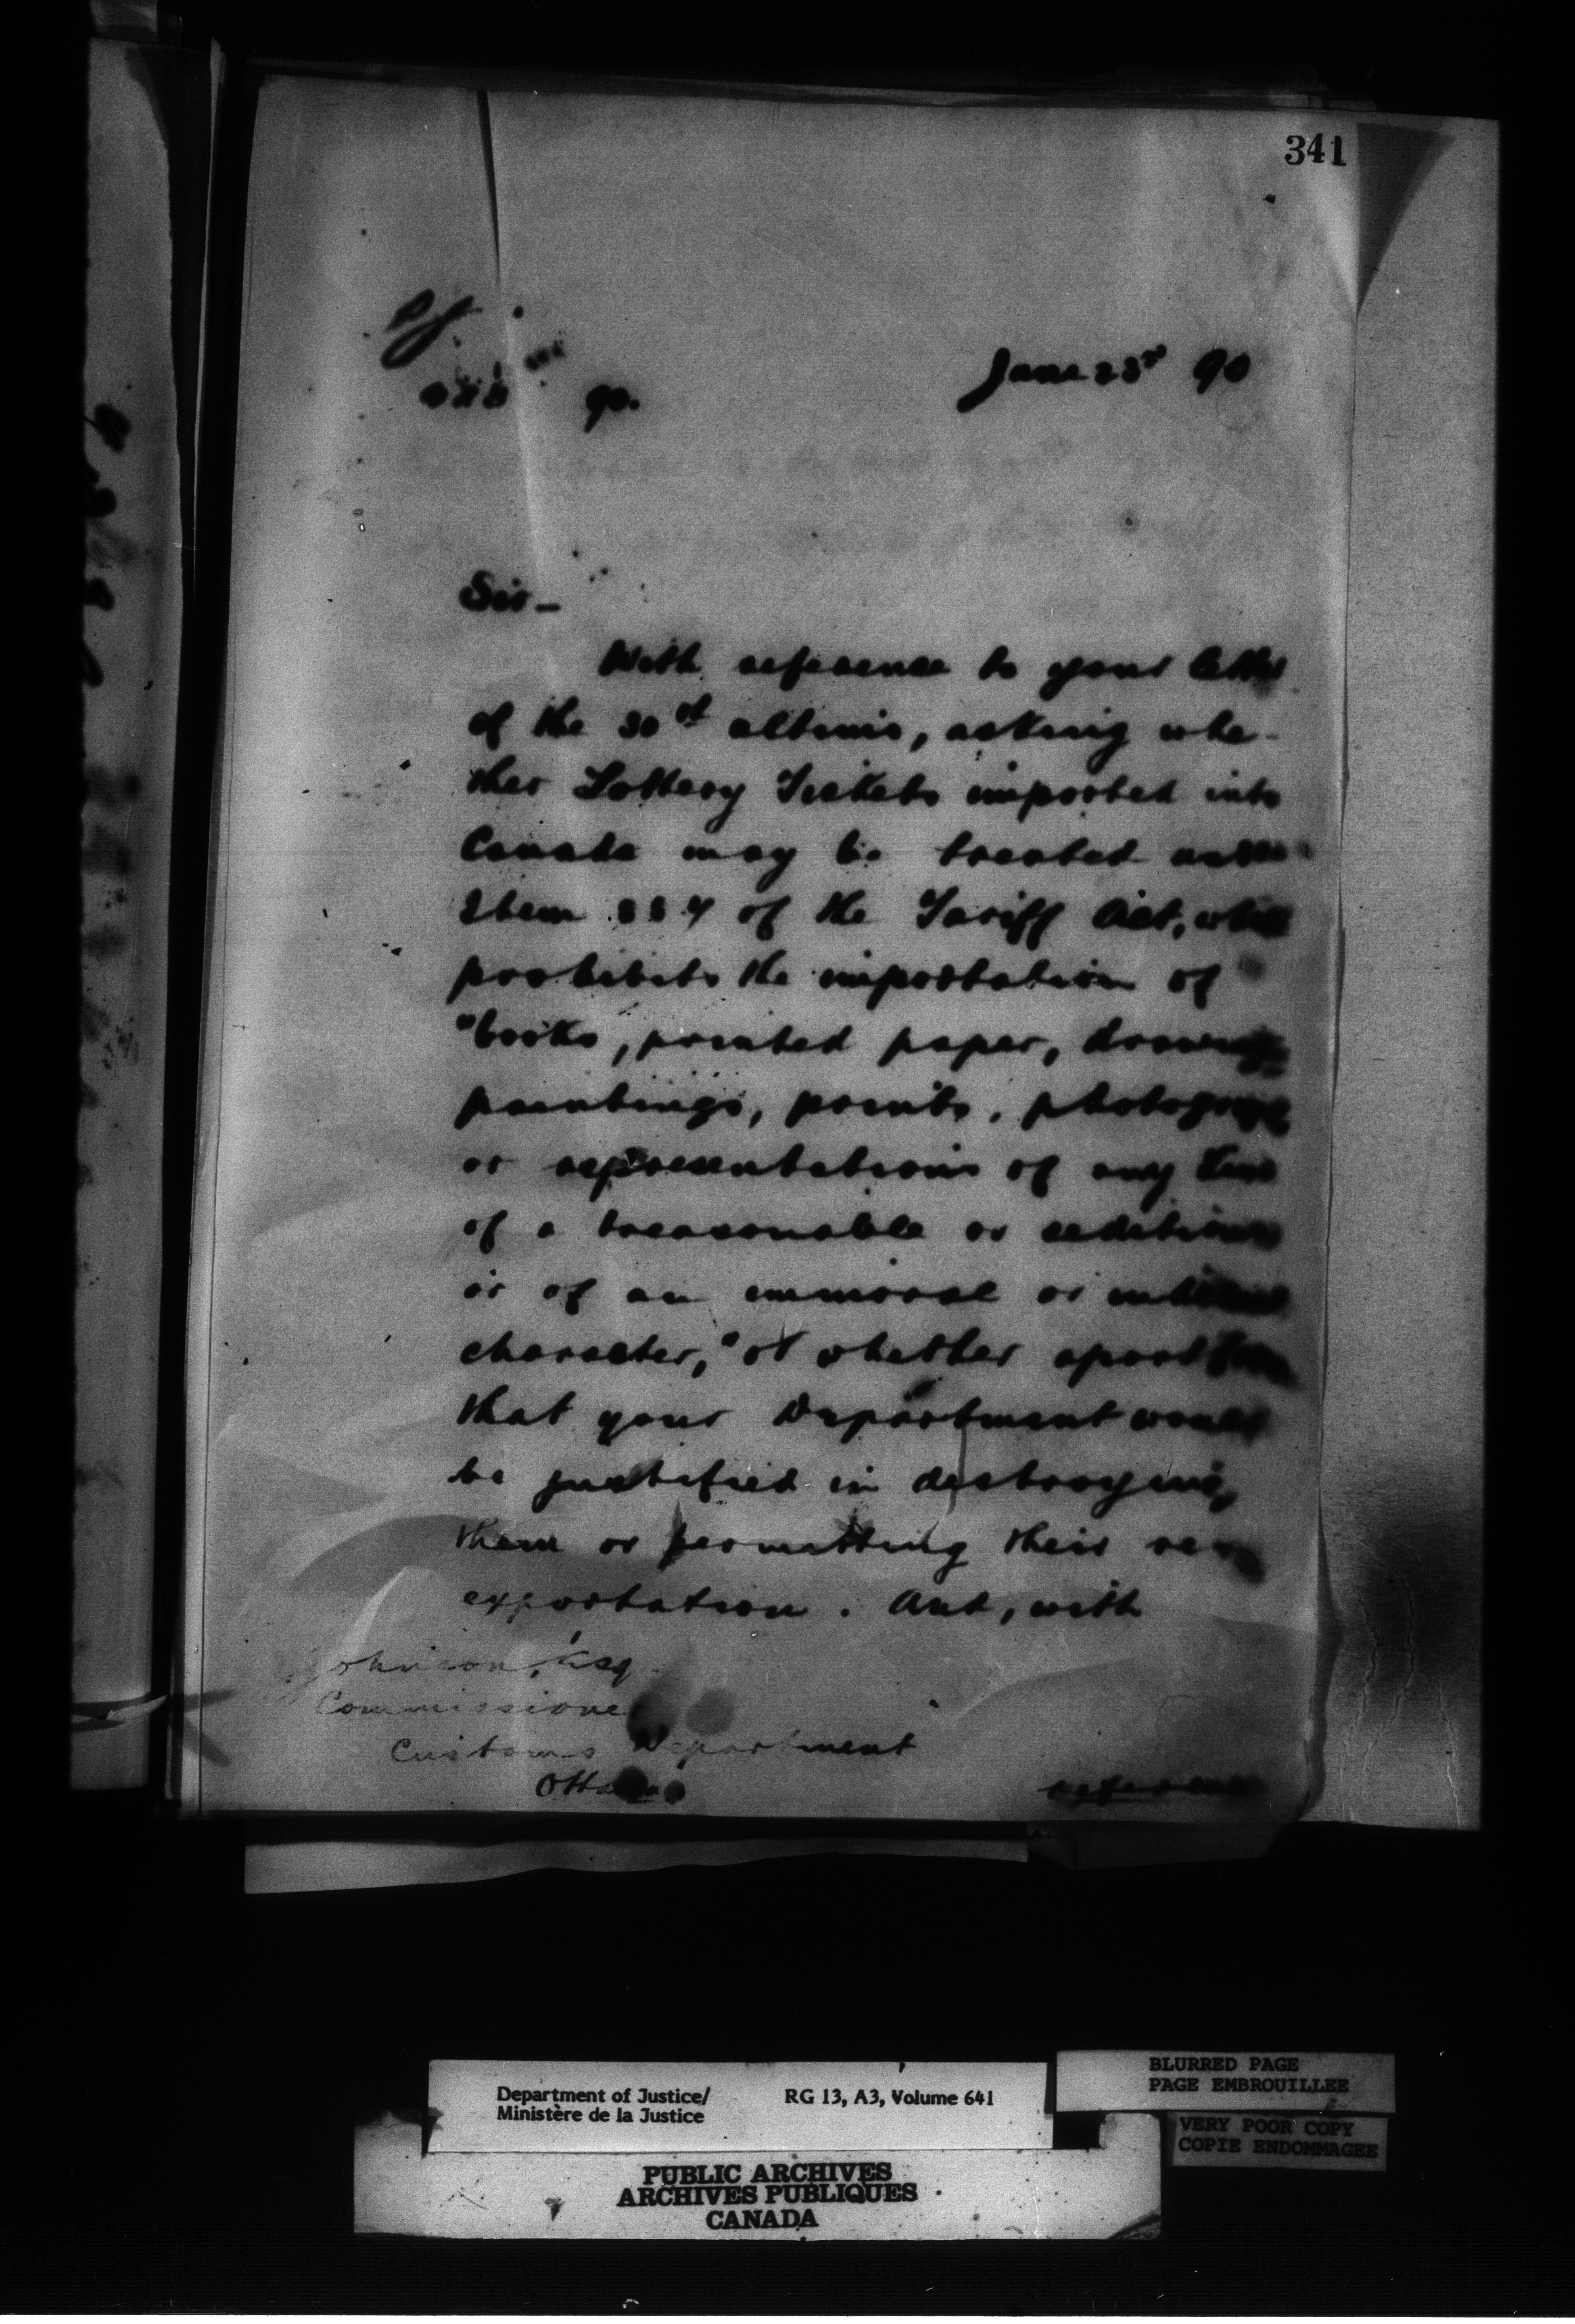 341
June 23rd 90
90.
Sir —
With reference to your letter
of the 30th ultimo, asking whe-
ther Lottery Tickets imported into
Canada may be treated under
Item of the Tariff Act, which
prohibits the importation of
"books, printed paper, drawings
paintings, prints, photographs
or representations of any kind
of a treasonable or seditious
or of an immoral or indecent
character," or whether apart from
that your Department would
be justified in destroying
them or permitting their re-
exportation. And, with
Johnson, Esq
Commissioner
Customs Department
Ottawa
reference
Department of Justice/
Ministère de la Justice
RG 13, A3, Volume 641
BLURRED PAGE
PAGE EMBROUILLEE
VERY POOR COPY
COPIE ENDOMMAGEE
PUBLIC ARCHIVES
ARCHIVES PUBLIQUES
CANADA